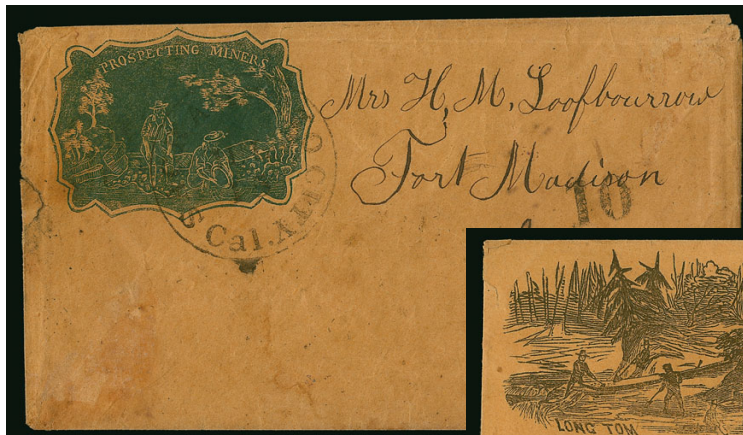 PROSPECTING MINERS
Mrs H, M, Loofbourrow
Fort Madison
10
O CITY
Cal.
LONG TOM